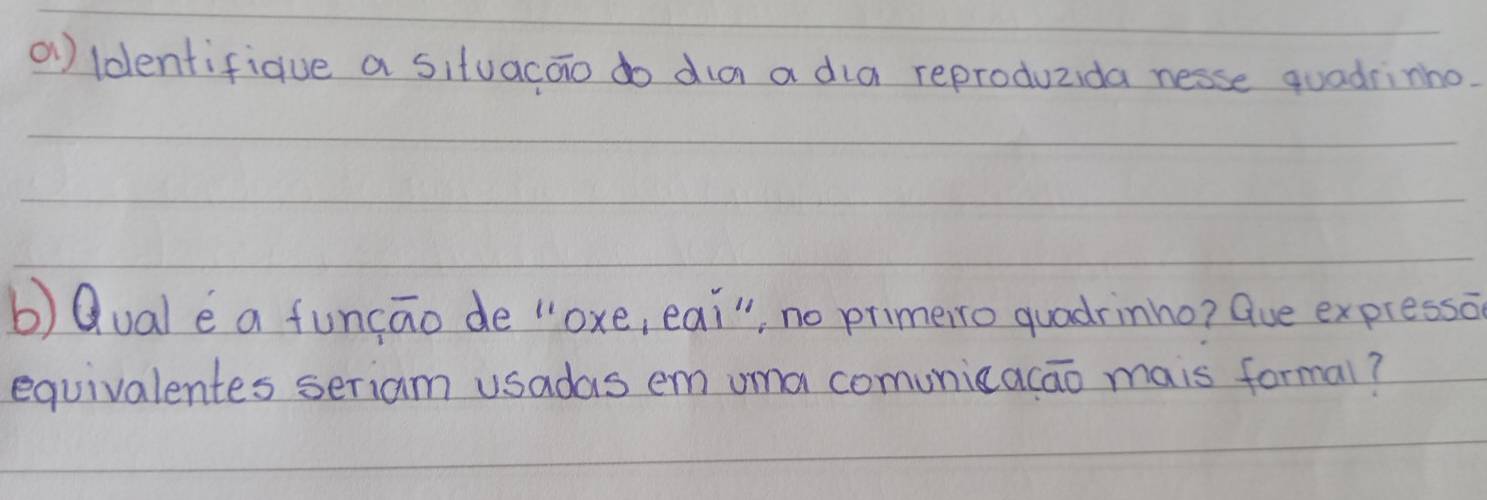 a) Identifique a situação do dia a dia reproduzida nesse quadrinho.
b) Qual é a função de "oxe, eai", no primeiro quadrinho? Que expressõe
equivalentes seriam usadas em uma comunicação mais formal?